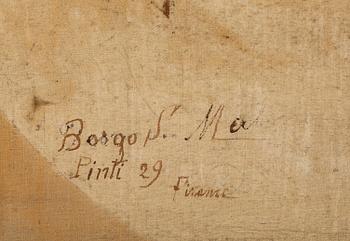 Borgo S. Ma
Pinti 29
Firenze